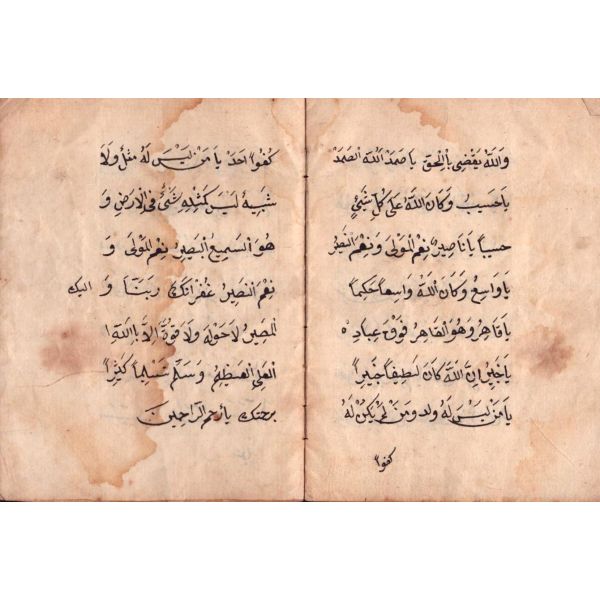 وَاللّٰهُ يَقْضِى بِالْحَقِّ يَا صَمَدْ اَللّٰهُ الصَّمَدْ
يَا حَسِيبُ وَكَانَ اللّٰهُ عَلٰى كُلِّ شَيْئٍ
حَسِيباً يَا نَاصِيرُ نِعْمَ الْمَوْلٰى وَنِعْمَ النَّصِيرُ
يَا وَاسِعُ وَكَانَ اللّٰهُ وَاسِعاً حَكِيماً
يَا قَاهِرُ وَهُوَ الْقَاهِرُ فَوْقَ عِبَادِهِ
يَا خَبِيرُ اِنَّ اللّٰهَ كَانَ لَطِيفاً خَبِيراً
يَا مَنْ لَيْسَ لَهُ وَلَدٌ وَمَنْ لَمْ يَكُنْ لَهُ
كفواً
كُفُواً اَحَدْ يَا مَنْ لَيْسَ لَهُ مِثْلٌ وَلَا
شَبِيهٌ لَيْسَ كَمِثْلِهِ شَيْئٌ فِى الْاَرْضِ وَ
هُوَ السَّمِيعُ الْبَصِيرُ نِعْمَ الْمَوْلٰى وَ
نِعْمَ النَّصِيرُ غُفْرَانَكَ رَبَّنَا وَ اليك
الْمَصِيرُ لَاحَوْلَ وَلَا قُوَّةَ اِلَّا بِاللّٰهِ ا
لْعَلِىِّ الْعَظِيمِ وَسَلَّمَ تَسْلِيماً كَثِيراً
برحمتك يا ارحم الراحمين